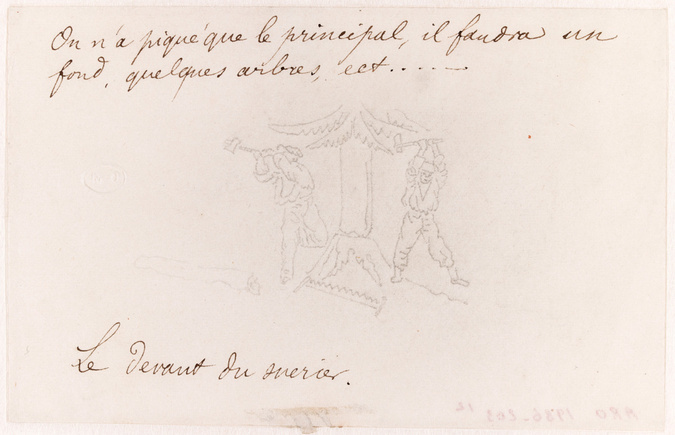 On n'a piqué que le principal, il faudra un
fond, quelques arbres, ect.....
Le devant du sucrier.
ARO 1936-203